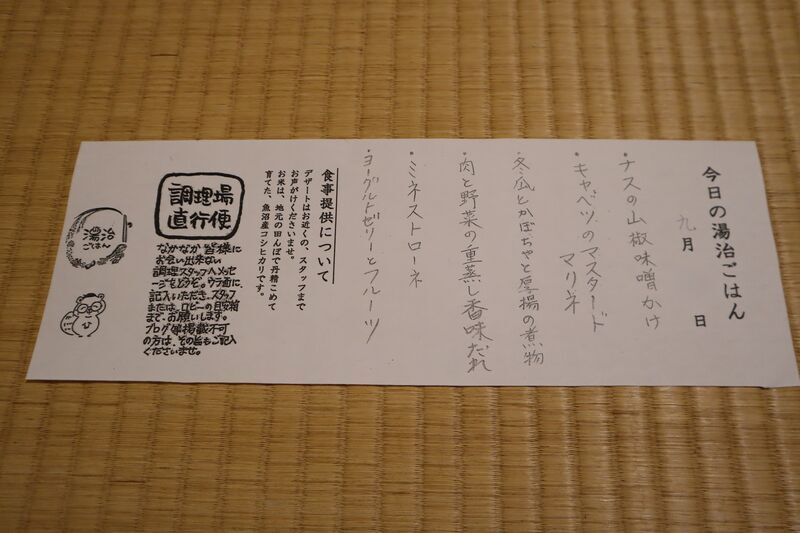 今日の湯治ごはん
九月　日
・ナスの山椒味噌かけ
・キャベツのマスタード
マリネ
・冬瓜とかぼちゃと厚揚の煮物
・肉と野菜の重蒸し香味だれ
・ミネストローネ
・ヨーグルトゼリーとフルーツ
食事提供について
デザートはお近くの、スタッフまで
お声がけくださいませ。
お米は、地元の田んぼで丹精こめて
育てた、魚沼産コシヒカリです。
調理場
直行便
なかなか皆様に
お会い出来ない
調理スタッフへメッセ
ージをどうぞ。ウラ面に、
記入いただき、スタッフ
または、ロビーの目安箱
まで、お願いします。
ブログ等掲載不可
の方は、その旨もご記入
くださいませ。
湯治
ごはん